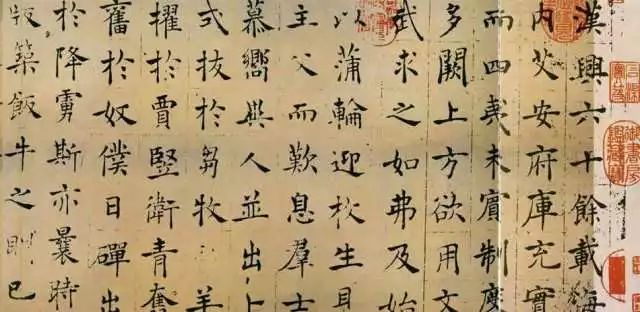 漢興六十餘載海
內艾安府庫充實
而四夷未賓制度
多闕上方欲用文
武求之如弗及始
以蒲輪迎枚生見
主父而歎息羣士
慕嚮異人並出卜
式拔於芻牧羊
擢於賈豎衛青奮
舊於奴僕日磾出
於降虜斯亦曩時
版築飯牛之已